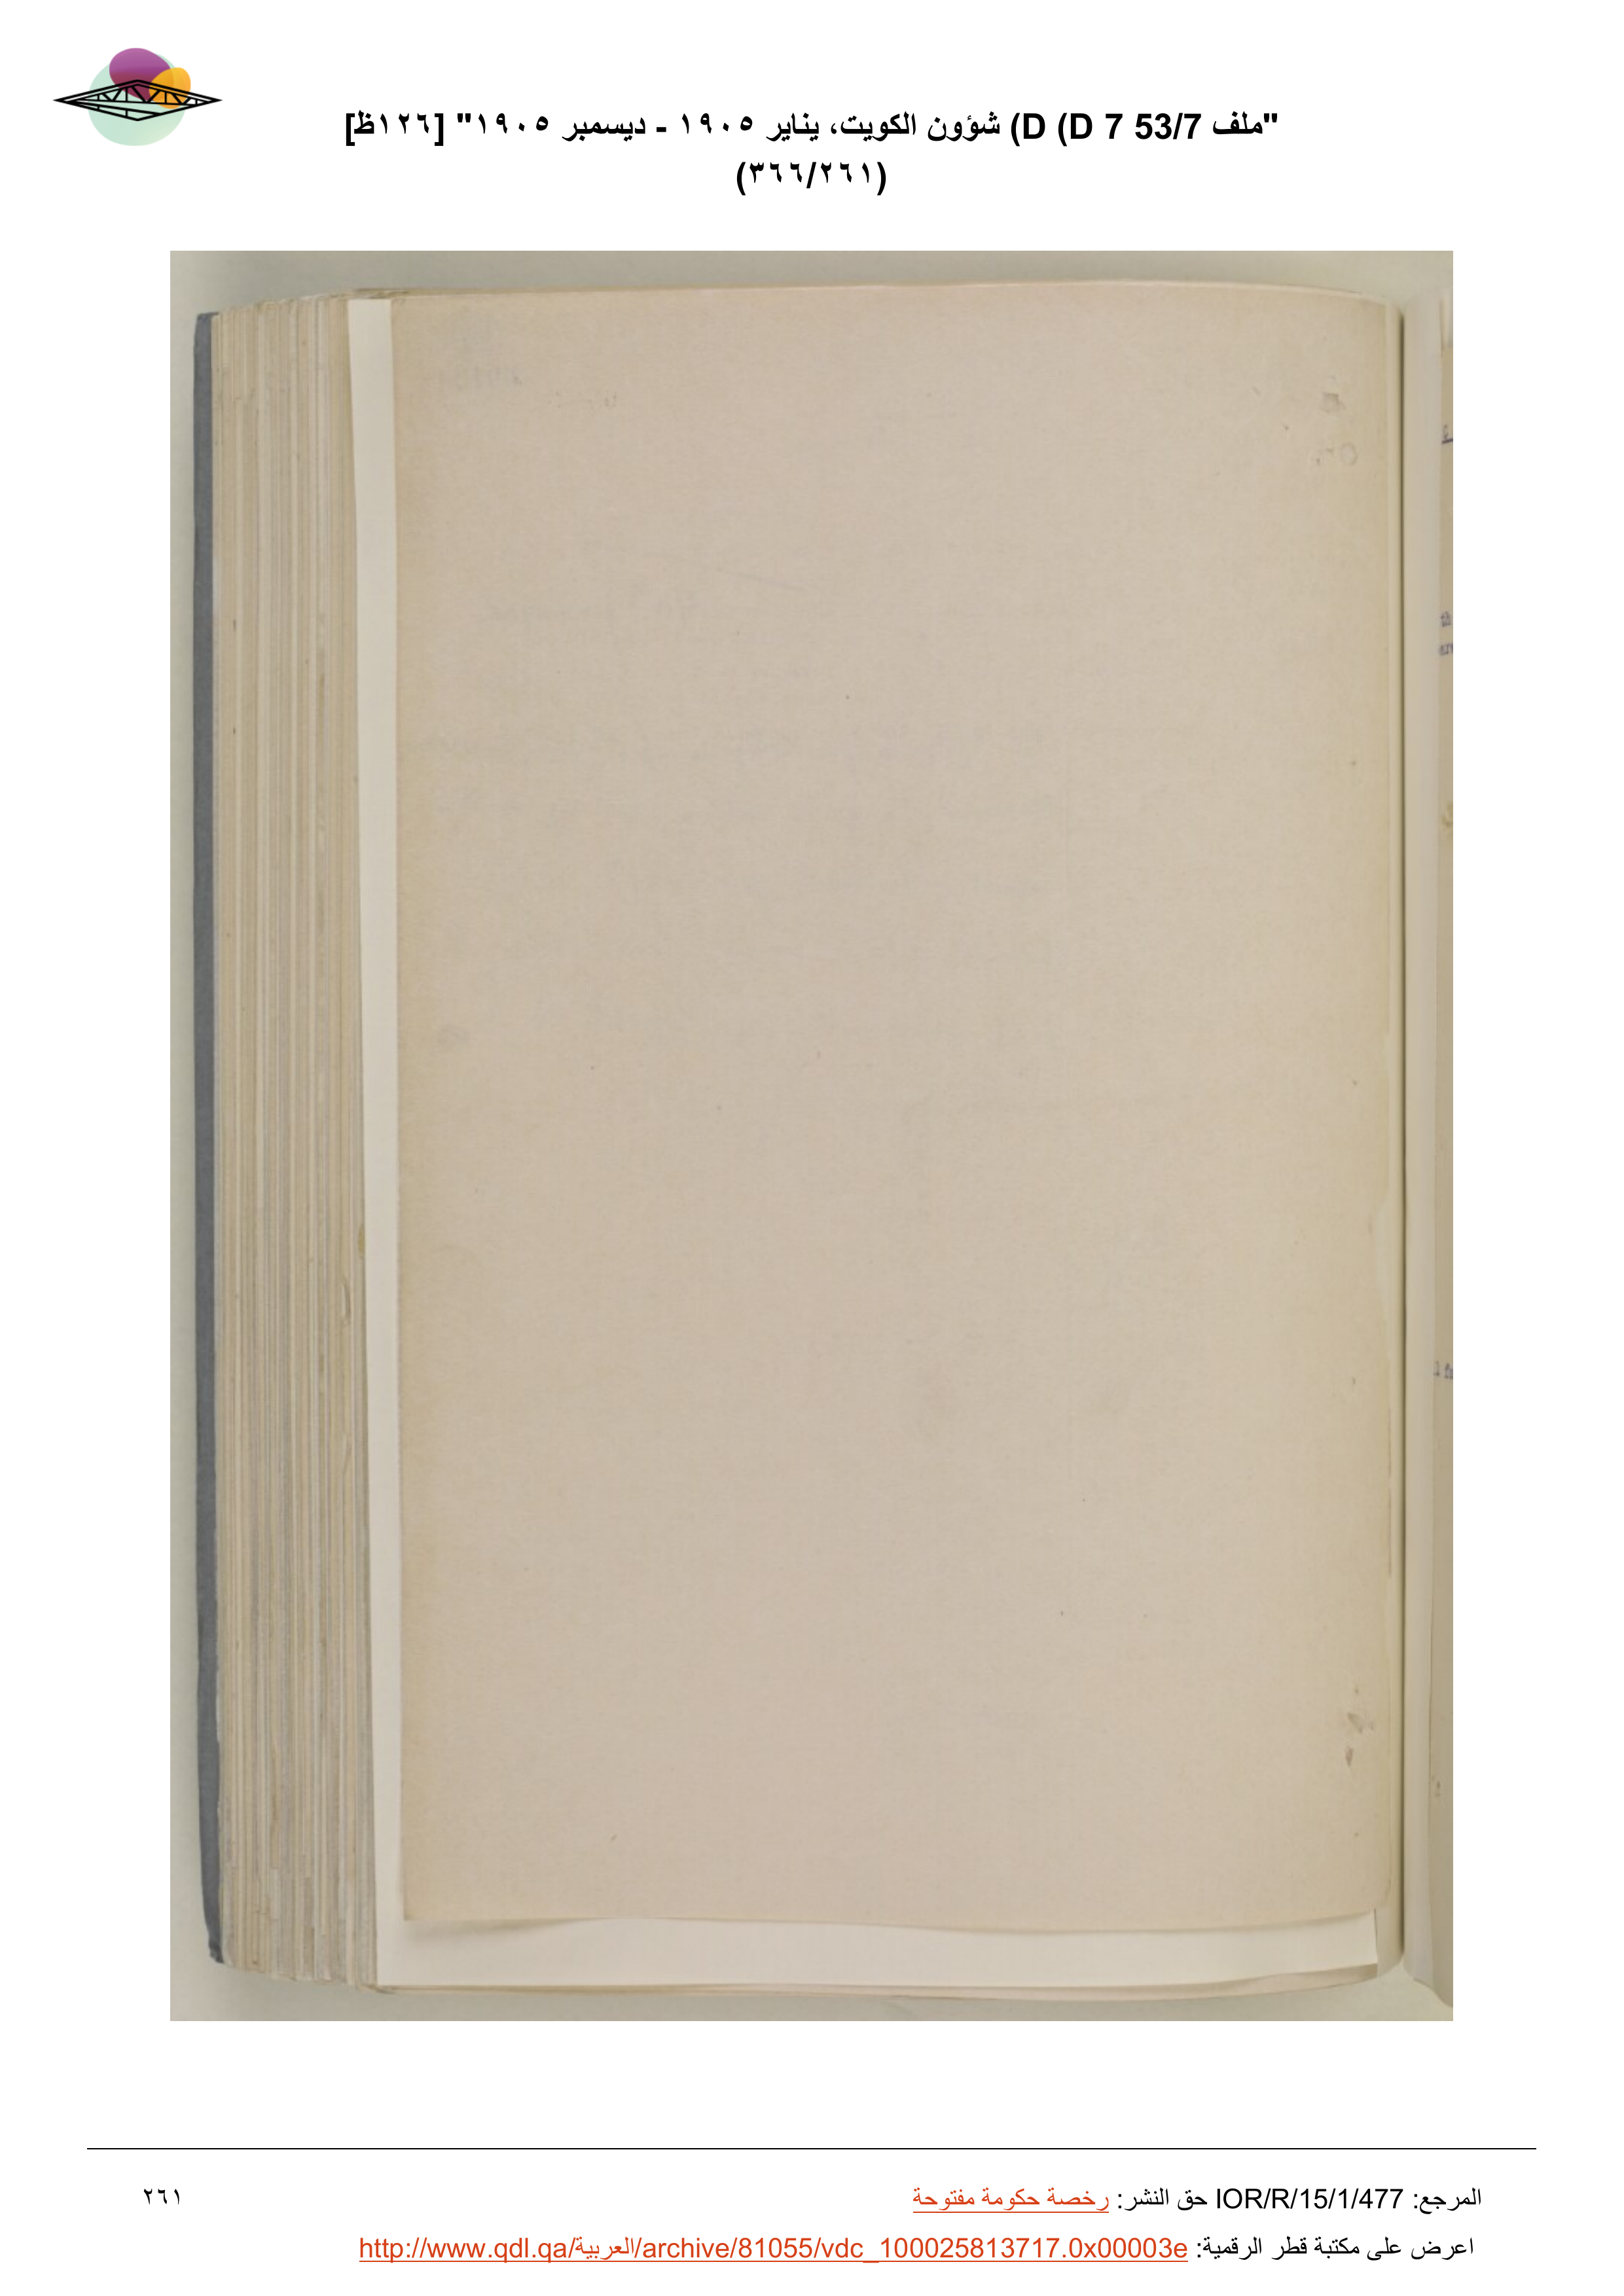 "ملف 53/7 D 7) D) شؤون الكويت، يناير ١٩٠٥ - ديسمبر ١٩٠٥" [١٢٦ظ]
(٣٦٦/٢٦١)
المرجع: IOR/R/15/1/477 حق النشر: رخصة حكومة مفتوحة
٢٦١
اعرض على مكتبة قطر الرقمية: http://www.qdl.qa/العربية/archive/81055/vdc_100025813717.0x00003e